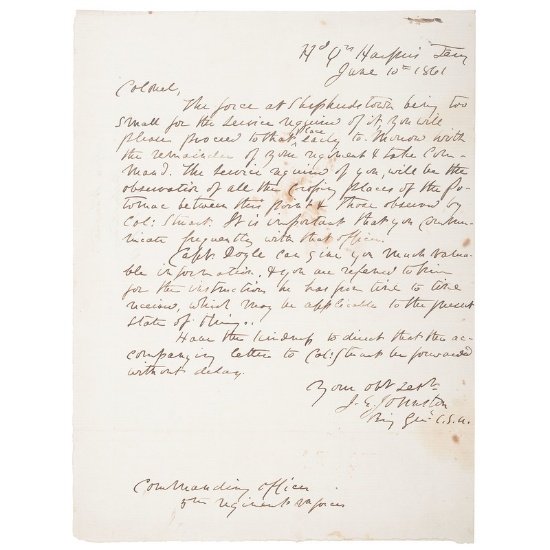 Hd Qrs Harpers Ferry
June 10th 1861
Colonel,
The force at Shepherdstown being too
small for the service required of it you will
place
please proceed to that early to-morrow with
the remainder of your regiment & take Com-
mand. The service required of you, will be the
observation of all the crossing places of the Po-
tomac between this point & those observed by
Col: Stuart. It is important that you commu-
nicate frequently with that officer.
Capt. Dogle can give you much valua-
ble information, & you are referred to him
for the instruction he has from time to time
received, which may be applicable to the present
state of things.
Have the kindness to direct that the ac-
companying letter to Col: Stuart be forwarded
without delay.
Your obt Servt.
J. E. Johnston
Brig Genl C.S.A.
Commanding Officer
5th regiment